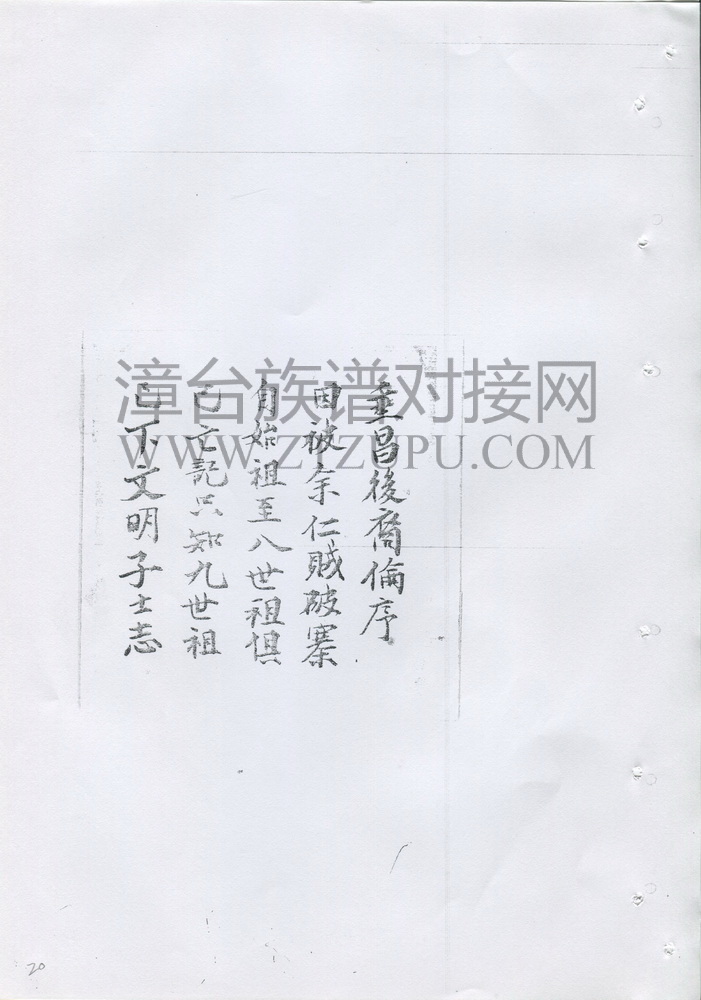 垂昌後裔倫序
因被余仁賊破寨
自始祖至八世祖俱
已亡記只知九世祖
已下文明子士志
漳台族谱对接网
WWW.ZTZUPU.COM
20